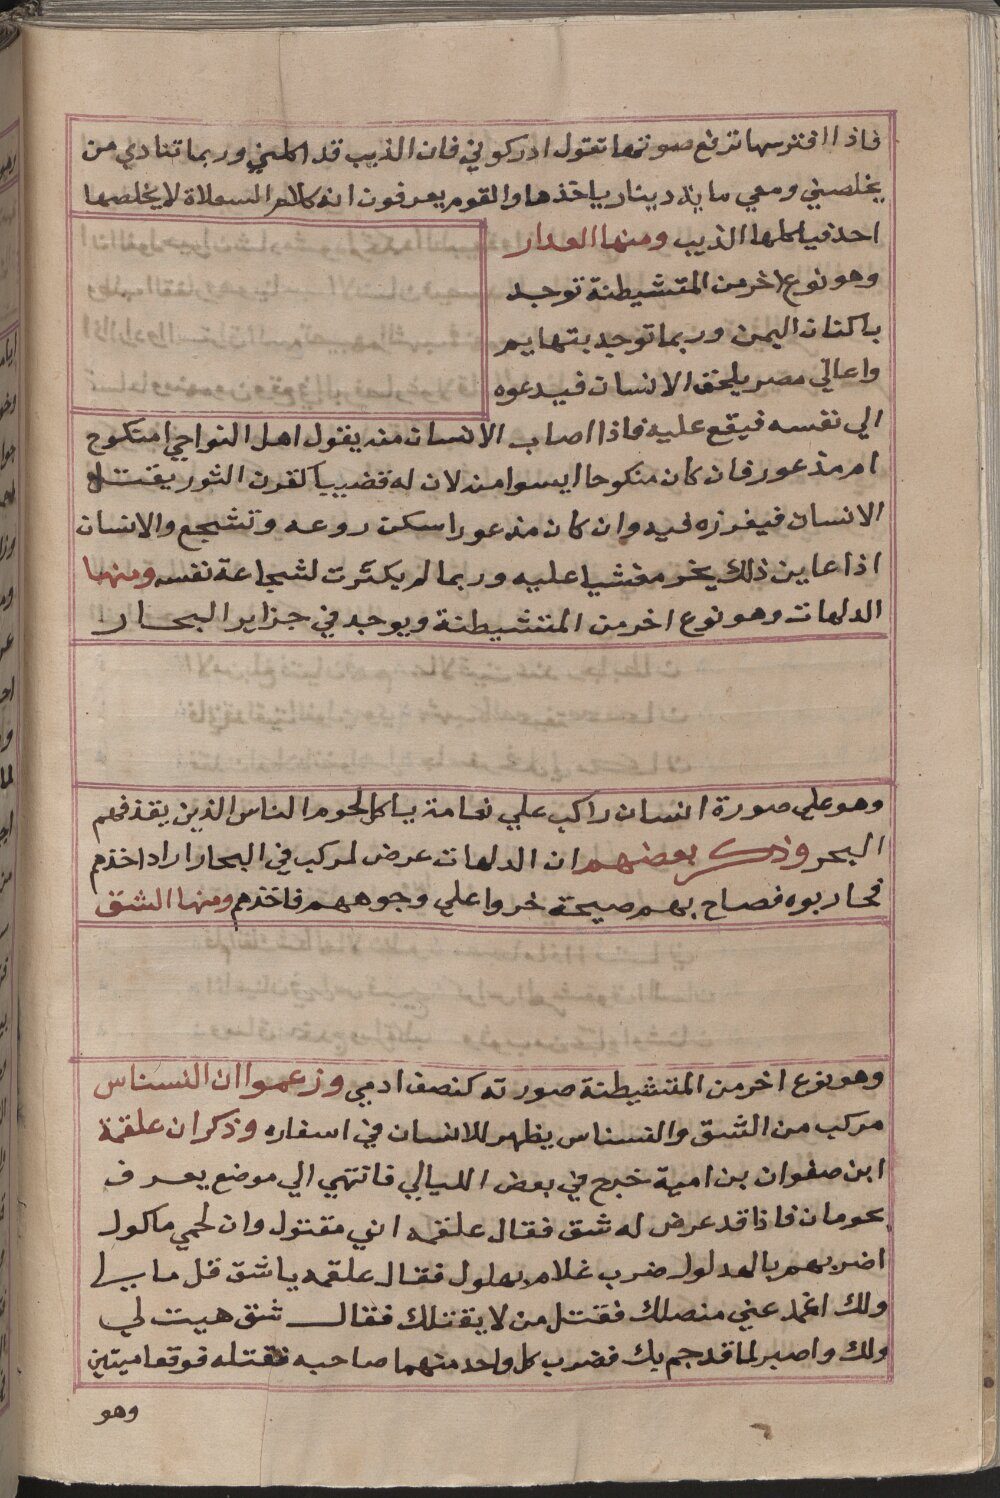 فاذا افترسها ترفع صوتها تقول ادركوني فان الذيب قد اكلني وربما تنادي من
يخلصني ومعي ماية دينار ياخذها والقوم يعرفون انه كلام السعلاة لا يخلصها
احد فياكلها الذيب ومنها العدار
وهو نوع اخر من المتشيطنة توجد
باكناف اليمن وربما توجد بتهايم
واعالي مصر يلحق الانسان فيدعوه
الي نفسه فيقع عليه فاذا اصاب الانسان منه يقول اهل النواحي امنكوح
ام مذعور فان كان منكوحا ايسوا منه لان له قضيبا كقرن الثور يقتل
الانسان فيغرزه فيه وان كان مذعورا سكن روعه وتشجع والانسان
اذا عاين ذلك يخر مغشيا عليه وربما لم يكثرت لشجاعة نفسه ومنها
الدلهات وهو نوع اخر من المتشيطنة ويوجد في جزاير البحار
وهو علي صورة انسان راكب علي نعامة ياكل لحوم الناس الذين يقذفهم
البحر وذكر بعضهم ان الدلهات عرض لمركب في البحار اراد اخذهم
فحاربوه فصاح بهم صيحة خروا علي وجوههم فاخذهم ومنها الشق
وهو نوع اخر من المتشيطنة صورته كنصف ادمي وزعموا ان النسناس
مركب من الشق والنسناس يظهر للانسان في اسفاره وذكر ان علقمة
ابن صفوان بن امية خرج في بعض الليالي فانتهي الي موضع يعرف
بحومان فاذا قد عرض له شق فقال علقمه اني مقتول وان لحمي ماكول
اضربهم بالهدلول ضرب غلام بهلول فقال علقمه ياشق قل مابي
ولك اغمد عني منصلك فقتل من لا يقتلك فقال شق هيت لي
ولك واصبر لما قد حم بك فضرب كل واحد منهما صاحبه فقتله فوقعا ميتين
وهو